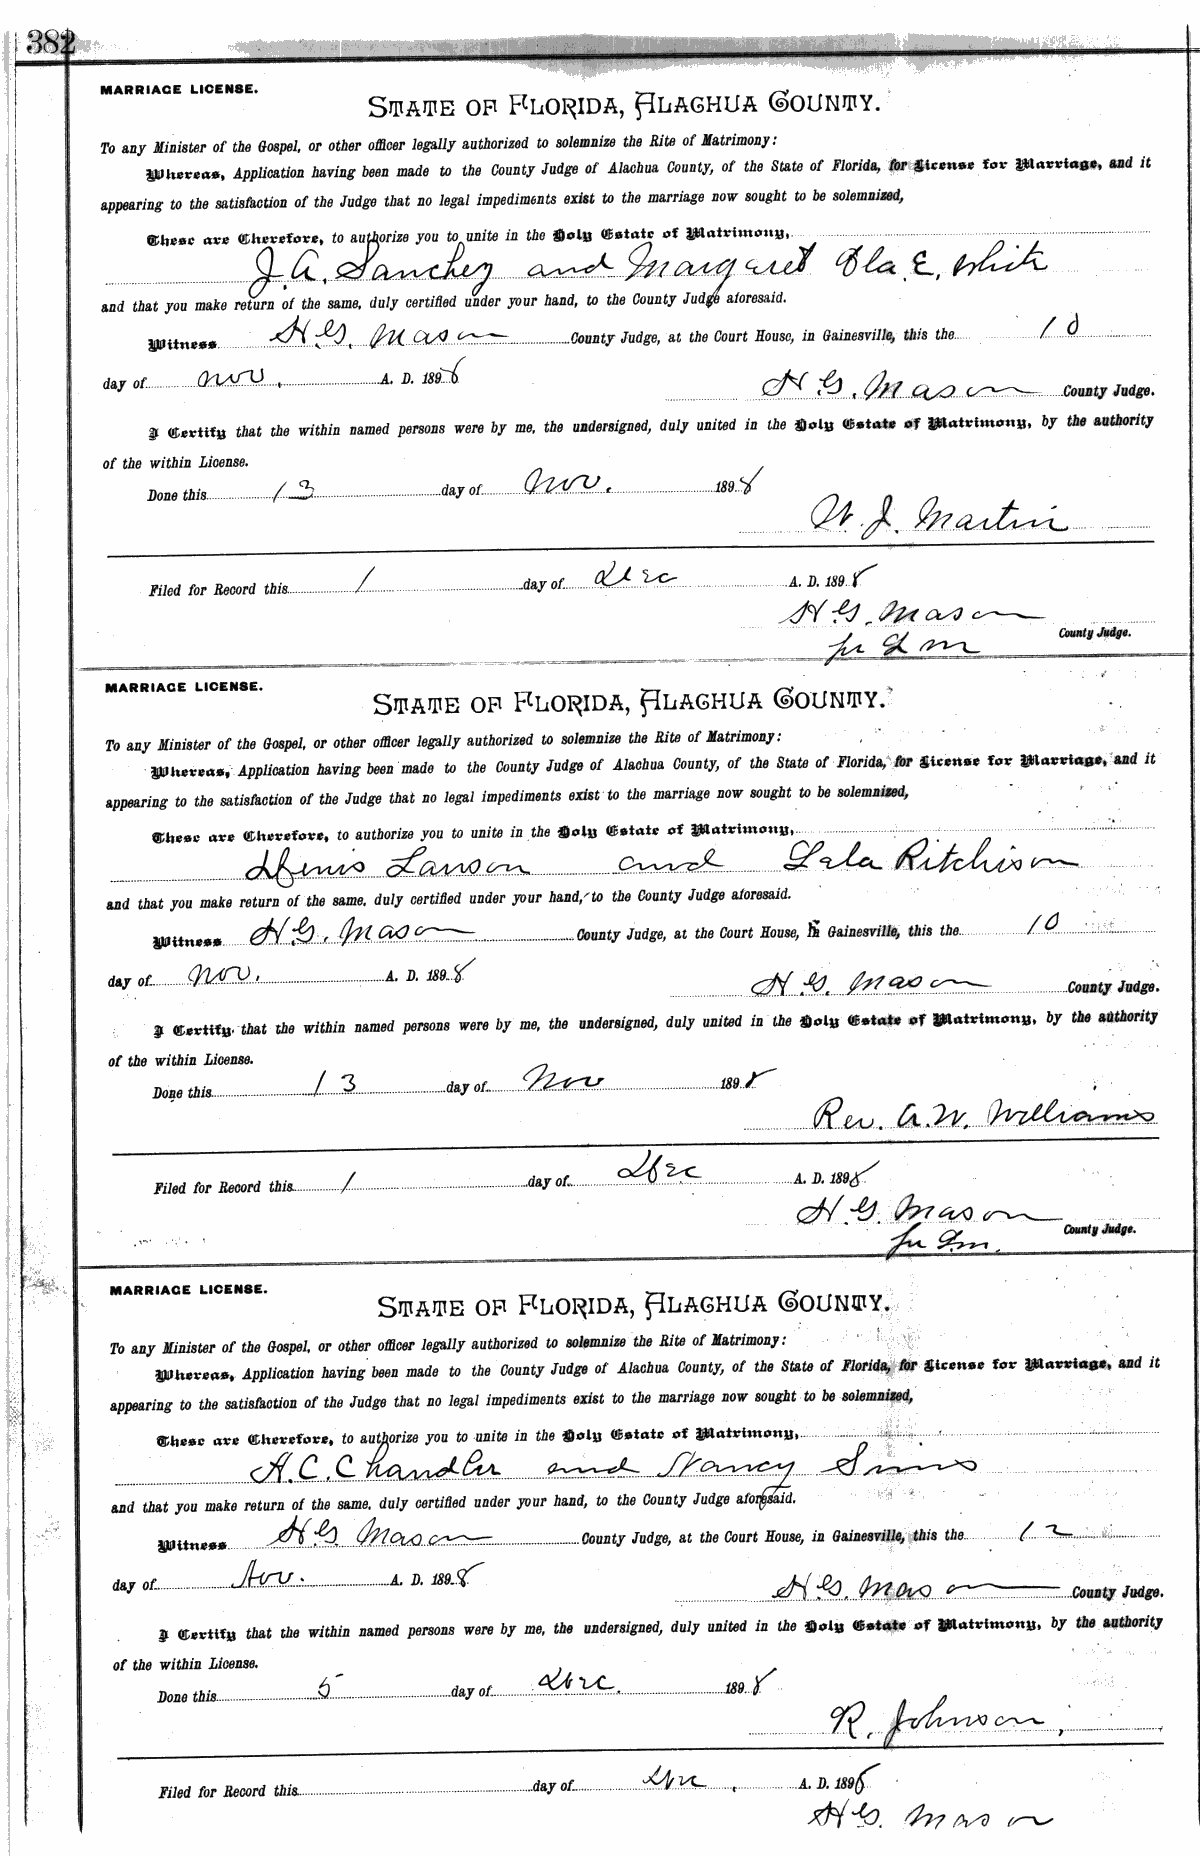 382
MARRIAGE LICENSE.
STATE OF FLORIDA, ALACHUA COUNTY.
To any Minister of the Gospel, or other officer legally authorized to solemnize the Rite of Matrimony:
Whereas, Application having been made to the County Judge of Alachua County, of the State of Florida, for License for Marriage, and it
appearing to the satisfaction of the Judge that no legal impediments exist to the marriage now sought to be solemnized,
These are Therefore, to authorize you to unite in the Holy Estate of Matrimony,
J. A. Sanchez and Margaret Ola E. White
and that you make return of the same, duly certified under your hand, to the County Judge aforesaid.
Witness H. G. Mason County Judge, at the Court House, in Gainesville, this the 10
day of Nov. A. D. 1898
H. G. Mason County Judge.
I Certify that the within named persons were by me, the undersigned, duly united in the Holy Estate of Matrimony, by the authority
of the within License.
Done this 13 day of Nov. 1898
W. J. Martin
Filed for Record this 1 day of Dec A. D. 1898
H. G. Mason
County Judge.
per L M
MARRIAGE LICENSE.
STATE OF FLORIDA, ALACHUA COUNTY.
To any Minister of the Gospel, or other officer legally authorized to solemnize the Rite of Matrimony:
Whereas, Application having been made to the County Judge of Alachua County, of the State of Florida, for License for Marriage, and it
appearing to the satisfaction of the Judge that no legal impediments exist to the marriage now sought to be solemnized,
These are Therefore, to authorize you to unite in the Holy Estate of Matrimony,
Denis Lawson and Lela Ritchison
and that you make return of the same, duly certified under your hand, to the County Judge aforesaid.
Witness H. G. Mason County Judge, at the Court House, in Gainesville, this the 10
day of Nov. A. D. 1898
H. G. Mason County Judge.
I Certify that the within named persons were by me, the undersigned, duly united in the Holy Estate of Matrimony, by the authority
of the within License.
Done this 13 day of Nov 1898
Rev. A. W. Williams
Filed for Record this 1 day of Dec A. D. 1898
H. G. Mason
County Judge.
per L m.
MARRIAGE LICENSE.
STATE OF FLORIDA, ALACHUA COUNTY.
To any Minister of the Gospel, or other officer legally authorized to solemnize the Rite of Matrimony:
Whereas, Application having been made to the County Judge of Alachua County, of the State of Florida, for License for Marriage, and it
appearing to the satisfaction of the Judge that no legal impediments exist to the marriage now sought to be solemnized,
These are Therefore, to authorize you to unite in the Holy Estate of Matrimony,
H. C. Chandler and Nancy Sims
and that you make return of the same, duly certified under your hand, to the County Judge aforesaid.
Witness H. G. Mason County Judge, at the Court House, in Gainesville, this the 12
day of Nov. A. D. 1898
H. G. Mason County Judge.
I Certify that the within named persons were by me, the undersigned, duly united in the Holy Estate of Matrimony, by the authority
of the within License.
Done this 5 day of Dec. 1898
R. Johnson,
Filed for Record this day of Dec. A. D. 1898
H. G. Mason